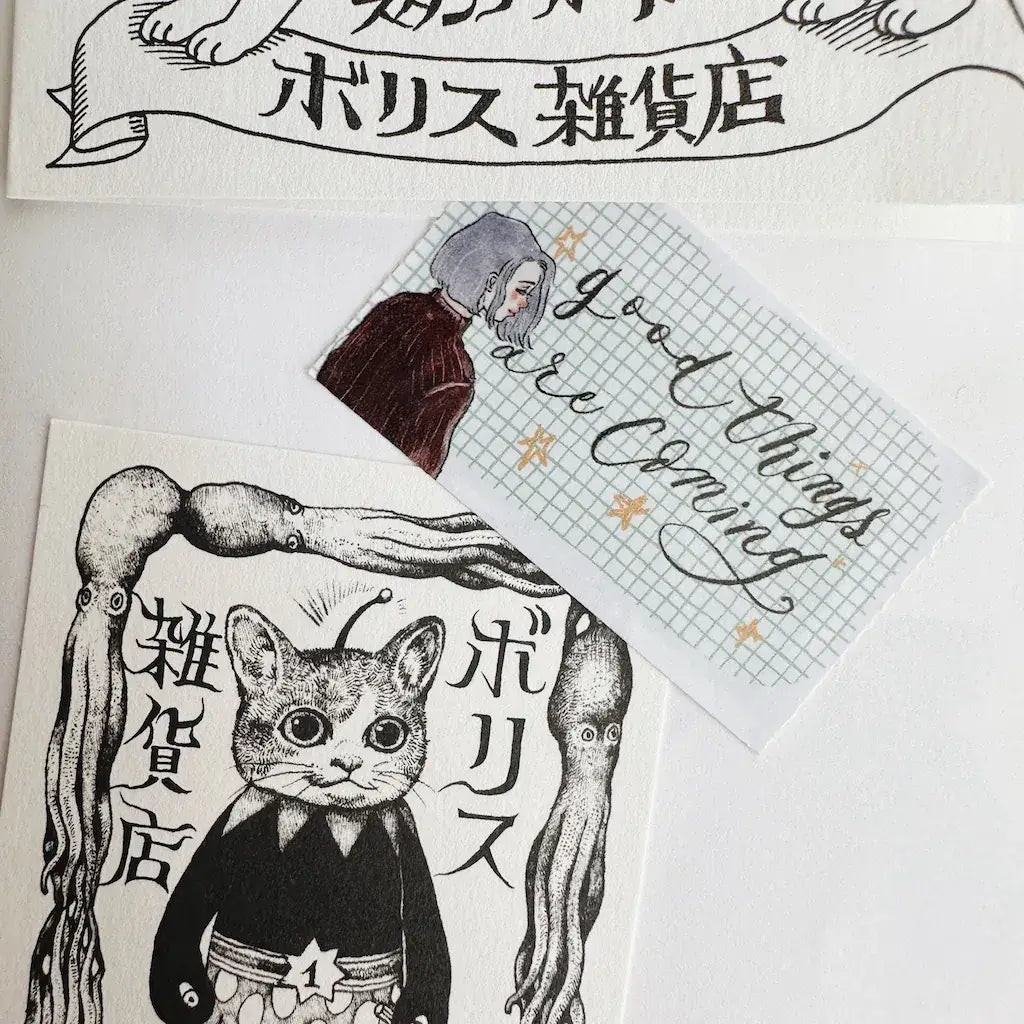 スタンプカード
ボリス雑貨店
good things
are Coming
ボリス
雑貨店
1